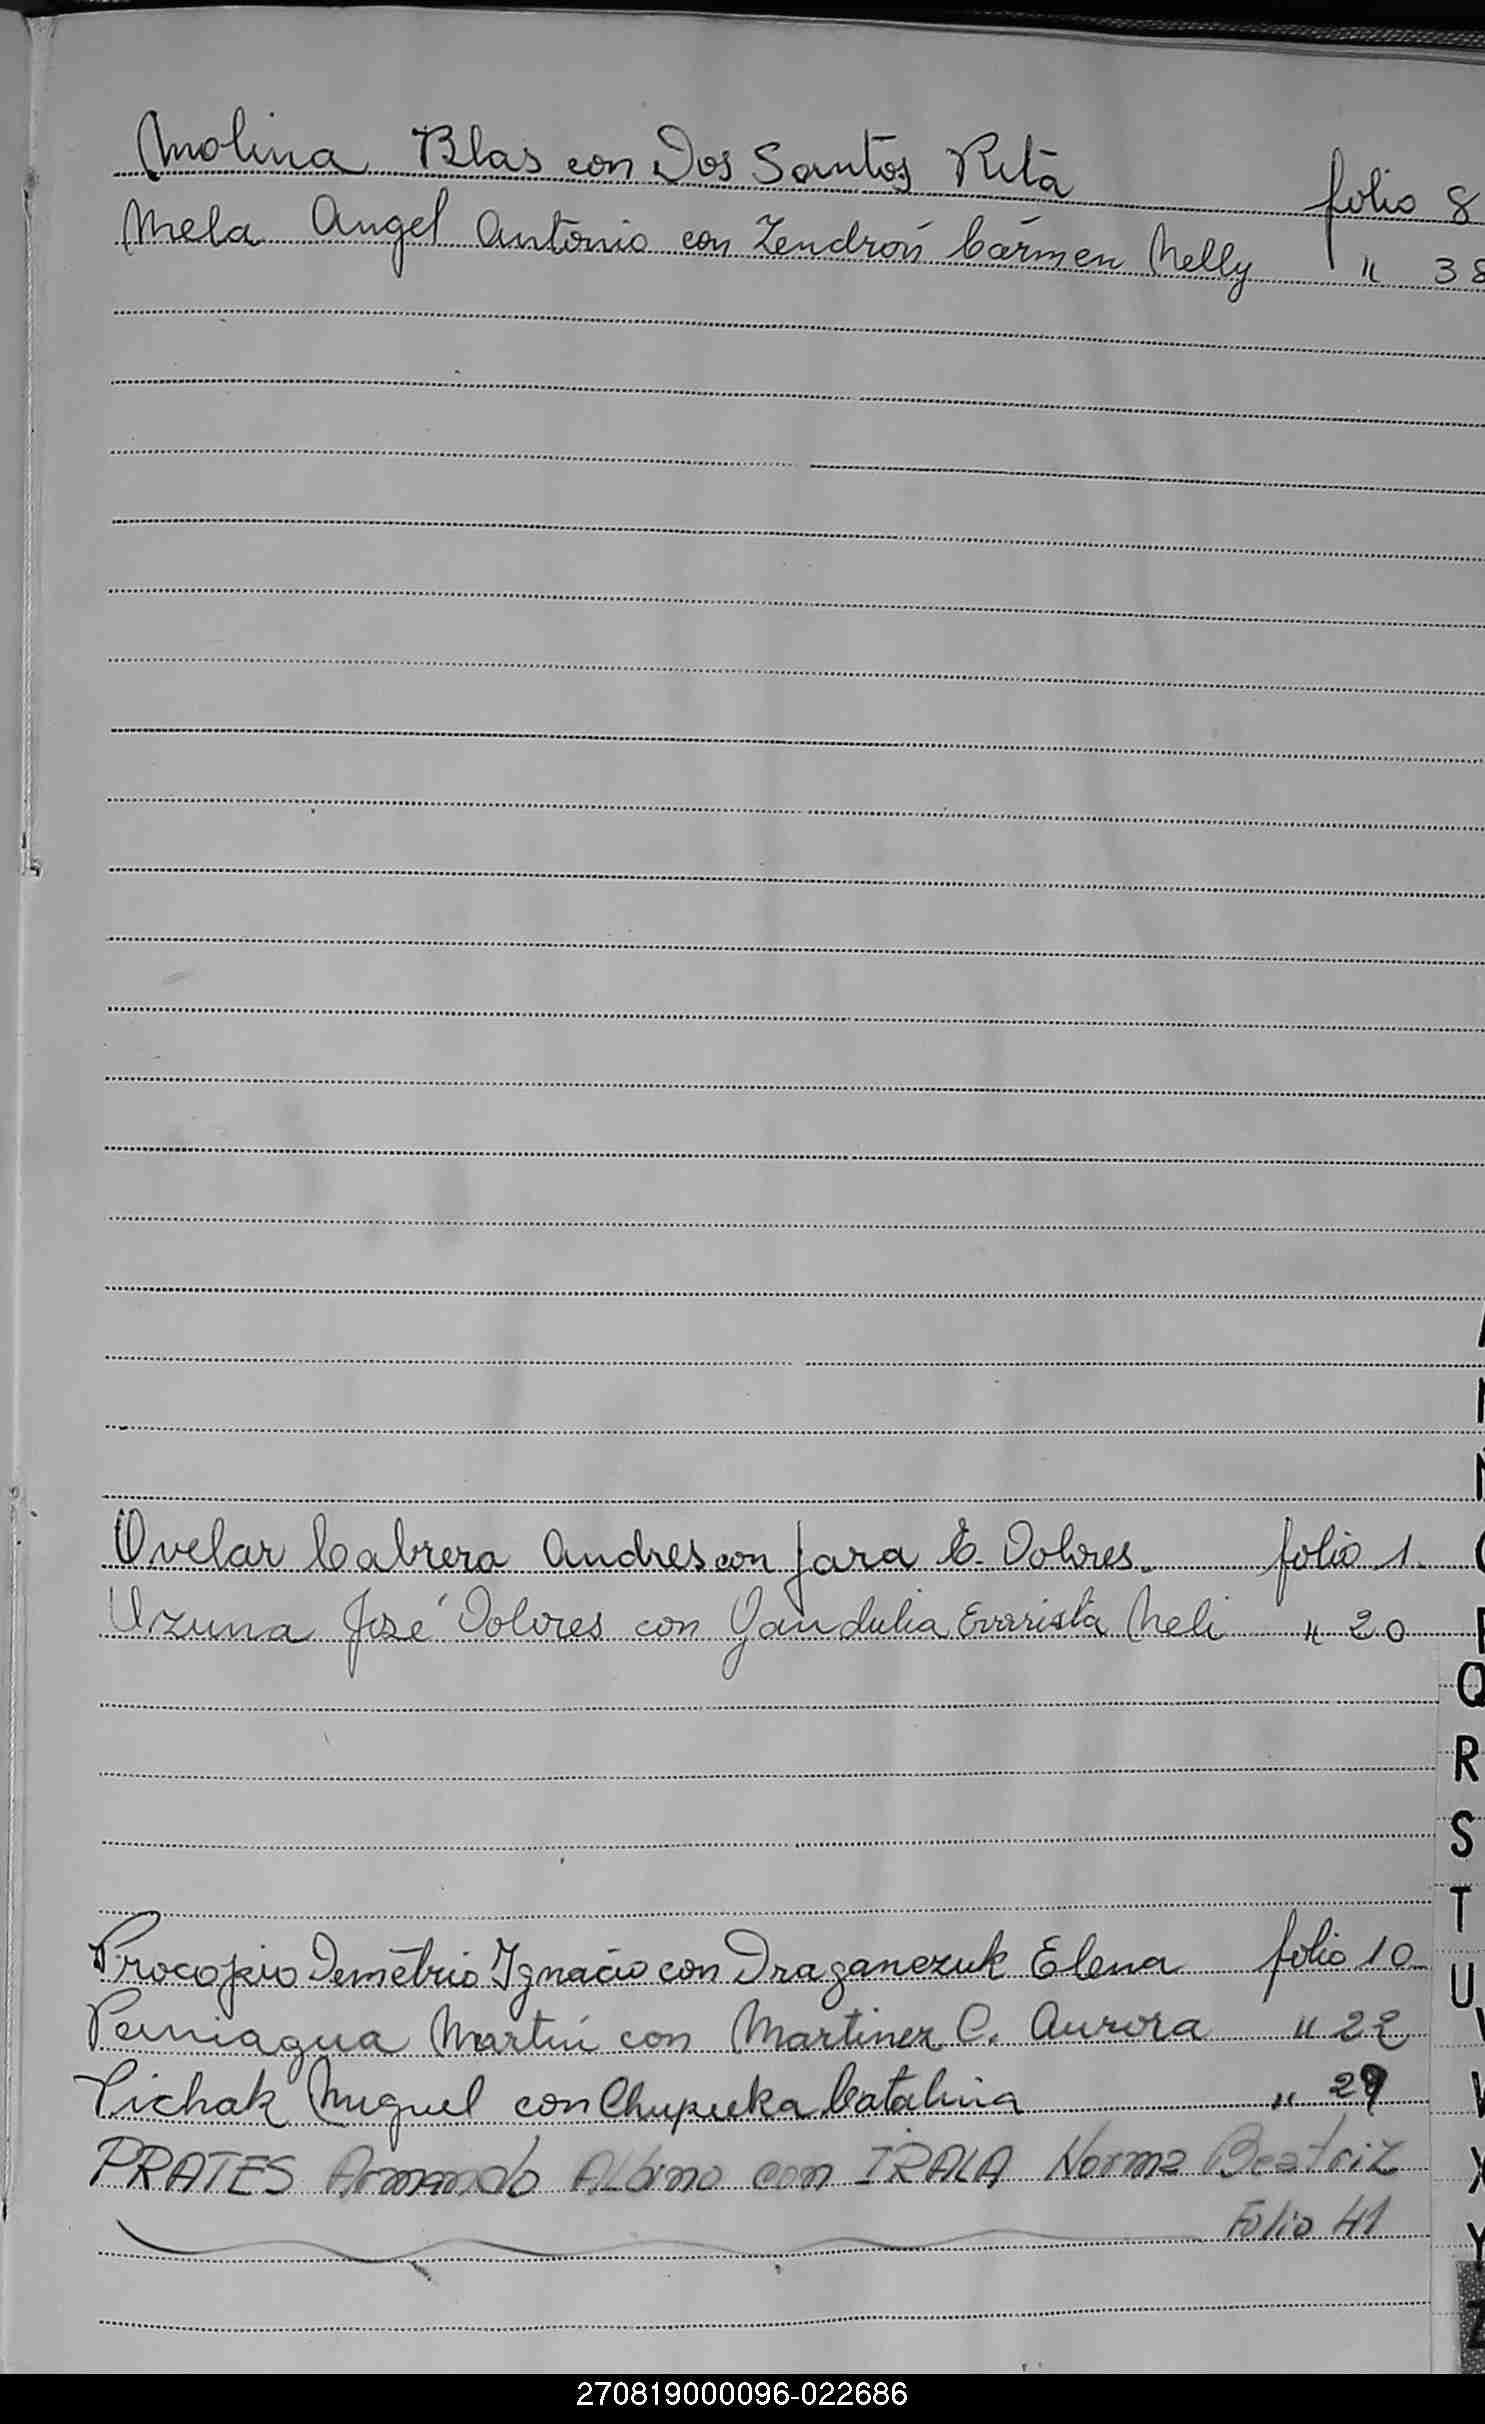 Molina Blas con Dos Santos Rita folio 8
Mela Angel Antonio con Zendron Cármen Nelly " 38
Ovelar Cabrera Andres con Jara E. Dolores. folio 1.
Uzuna José Dolores con Gandulia Evarista Neli " 20
Procopio Demetrio Ignacio con Draganczuk Elena folio 10
Perniagua Martín con Martinez C. Aurora " 22
Pichak Miguel con Chupeeka Catalina " 29
PRATES Armando Albino con IRALA Norma Beatriz
Folio 41
Q
R
S
T
U
X
Y
Z
270819000096-022686